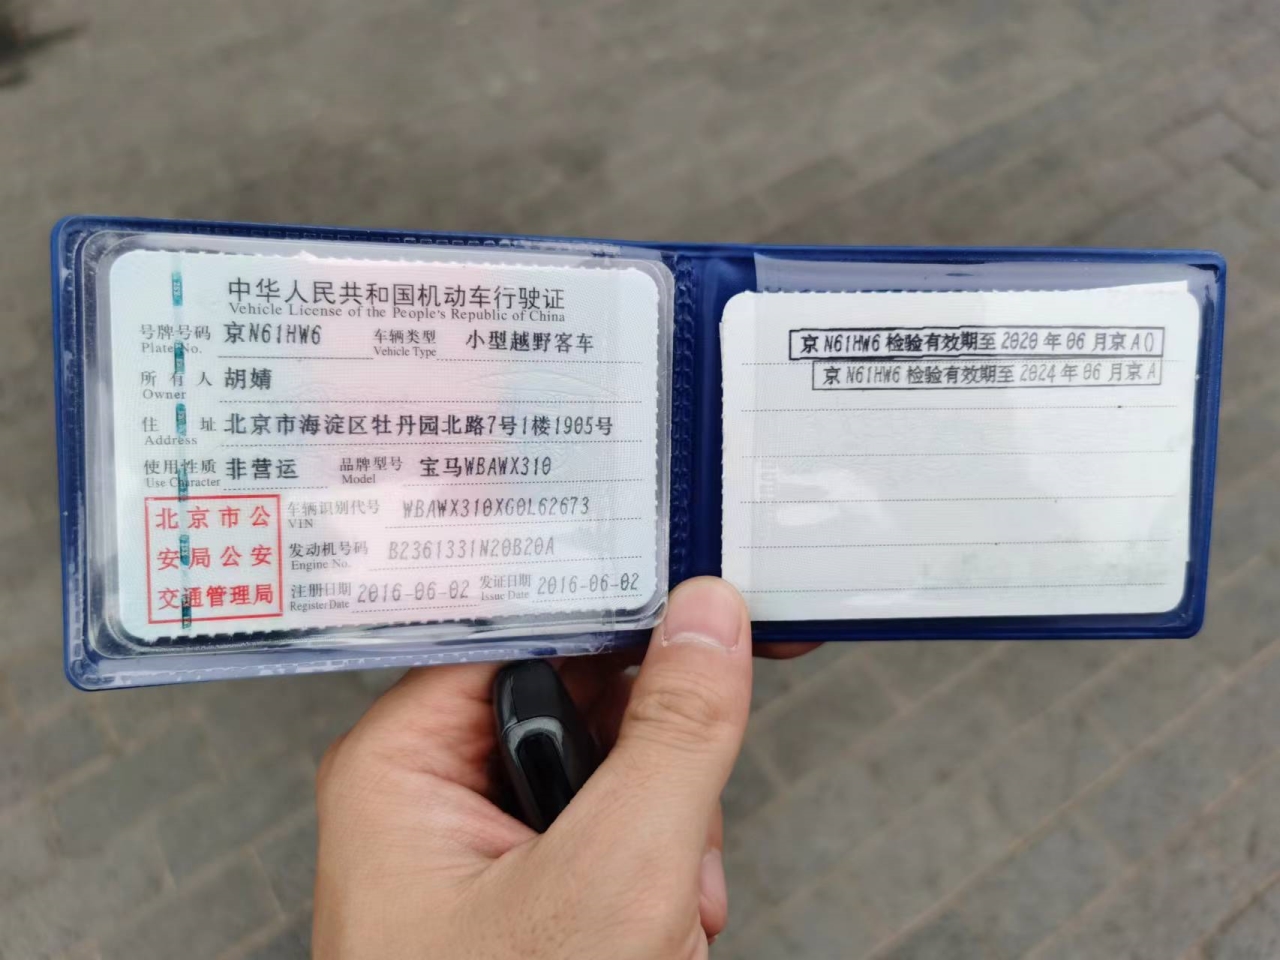 中华人民共和国机动车行驶证
Vehicle License of the People's Republic of China
号牌号码 京N61HW6 车辆类型 小型越野客车
Plate No. Vehicle Type
所有人 胡婧
Owner
住址 北京市海淀区牡丹园北路7号1楼1905号
Address
使用性质 非营运 品牌型号 宝马WBAWX310
Use Character Model
北京市公安局公安交通管理局
车辆识别代号 WBAWX310XG0L62673
VIN
发动机号码 B2361331N20B20A
Engine No.
注册日期 2016-06-02 发证日期 2016-06-02
Register Date Issue Date
京N61HW6检验有效期至2020年06月京A0
京N61HW6检验有效期至2024年06月京A